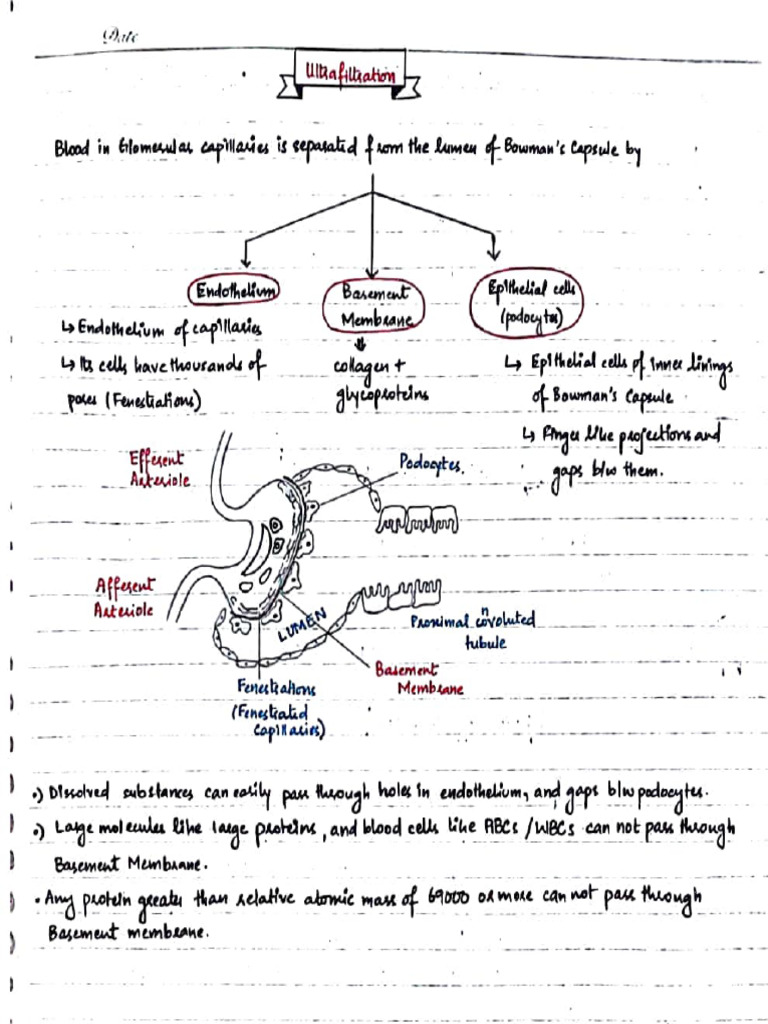 Date
Ultrafiltration
Blood in Glomerular capillaries is separated from the lumen of Bowman's Capsule by
Endothelium
↳ Endothelium of capillaries
↳ Its cells have thousands of
pores (Fenestrations)
Basement
Membrane
collagen +
glycoproteins
Epithelial cells
(podocytes)
↳ Epithelial cells of inner linings
of Bowman's Capsule
↳ Finger like projections and
gaps b/w them.
Efferent
Arteriole
Podocytes
Afferent
Arteriole
LUMEN
Proximal convoluted
tubule
Basement
Membrane
Fenestrations
(Fenestrated
Capillaries)
•) Dissolved substances can easily pass through holes in endothelium, and gaps b/w podocytes.
•) Large molecules like large proteins, and blood cells like RBCs / WBCs can not pass through
Basement Membrane.
• Any protein greater than relative atomic mass of 69000 or more can not pass through
Basement membrane.